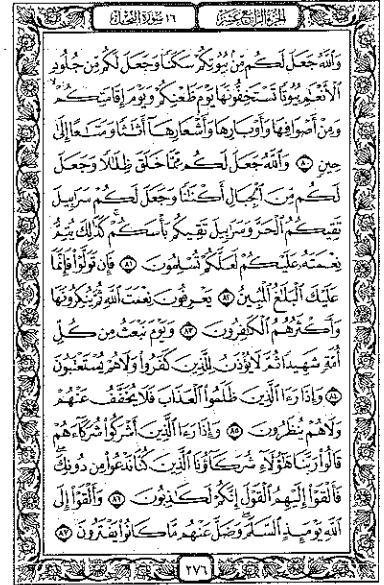 الجزء الرابع عشر
١٦ سورة النحل
وَٱللَّهُ جَعَلَ لَكُم مِّنۢ بُيُوتِكُمْ سَكَنًا وَجَعَلَ لَكُم مِّن جُلُودِ
ٱلْأَنْعَـٰمِ بُيُوتًا تَسْتَخِفُّونَهَا يَوْمَ ظَعْنِكُمْ وَيَوْمَ إِقَامَتِكُمْ
وَمِنْ أَصْوَافِهَا وَأَوْبَارِهَا وَأَشْعَارِهَآ أَثَـٰثًا وَمَتَـٰعًا إِلَىٰ
حِينٍ ٨٠ وَٱللَّهُ جَعَلَ لَكُم مِّمَّا خَلَقَ ظِلَـٰلًا وَجَعَلَ
لَكُم مِّنَ ٱلْجِبَالِ أَكْنَـٰنًا وَجَعَلَ لَكُمْ سَرَٰبِيلَ
تَقِيكُمُ ٱلْحَرَّ وَسَرَٰبِيلَ تَقِيكُم بَأْسَكُمْ كَذَٰلِكَ يُتِمُّ
نِعْمَتَهُۥ عَلَيْكُمْ لَعَلَّكُمْ تُسْلِمُونَ ٨١ فَإِن تَوَلَّوْا۟ فَإِنَّمَا
عَلَيْكَ ٱلْبَلَـٰغُ ٱلْمُبِينُ ٨٢ يَعْرِفُونَ نِعْمَتَ ٱللَّهِ ثُمَّ يُنكِرُونَهَا
وَأَكْثَرُهُمُ ٱلْكَـٰفِرُونَ ٨٣ وَيَوْمَ نَبْعَثُ مِن كُلِّ
أُمَّةٍ شَهِيدًا ثُمَّ لَا يُؤْذَنُ لِلَّذِينَ كَفَرُوا۟ وَلَا هُمْ يُسْتَعْتَبُونَ
٨٤ وَإِذَا رَءَا ٱلَّذِينَ ظَلَمُوا۟ ٱلْعَذَابَ فَلَا يُخَفَّفُ عَنْهُمْ
وَلَا هُمْ يُنظَرُونَ ٨٥ وَإِذَا رَءَا ٱلَّذِينَ أَشْرَكُوا۟ شُرَكَآءَهُمْ
قَالُوا۟ رَبَّنَا هَـٰٓؤُلَآءِ شُرَكَآؤُنَا ٱلَّذِينَ كُنَّا نَدْعُوا۟ مِن دُونِكَ
فَأَلْقَوْا۟ إِلَيْهِمُ ٱلْقَوْلَ إِنَّكُمْ لَكَـٰذِبُونَ ٨٦ وَأَلْقَوْا۟ إِلَى
ٱللَّهِ يَوْمَئِذٍ ٱلسَّلَمَ وَضَلَّ عَنْهُم مَّا كَانُوا۟ يَفْتَرُونَ ٨٧
٢٧٦